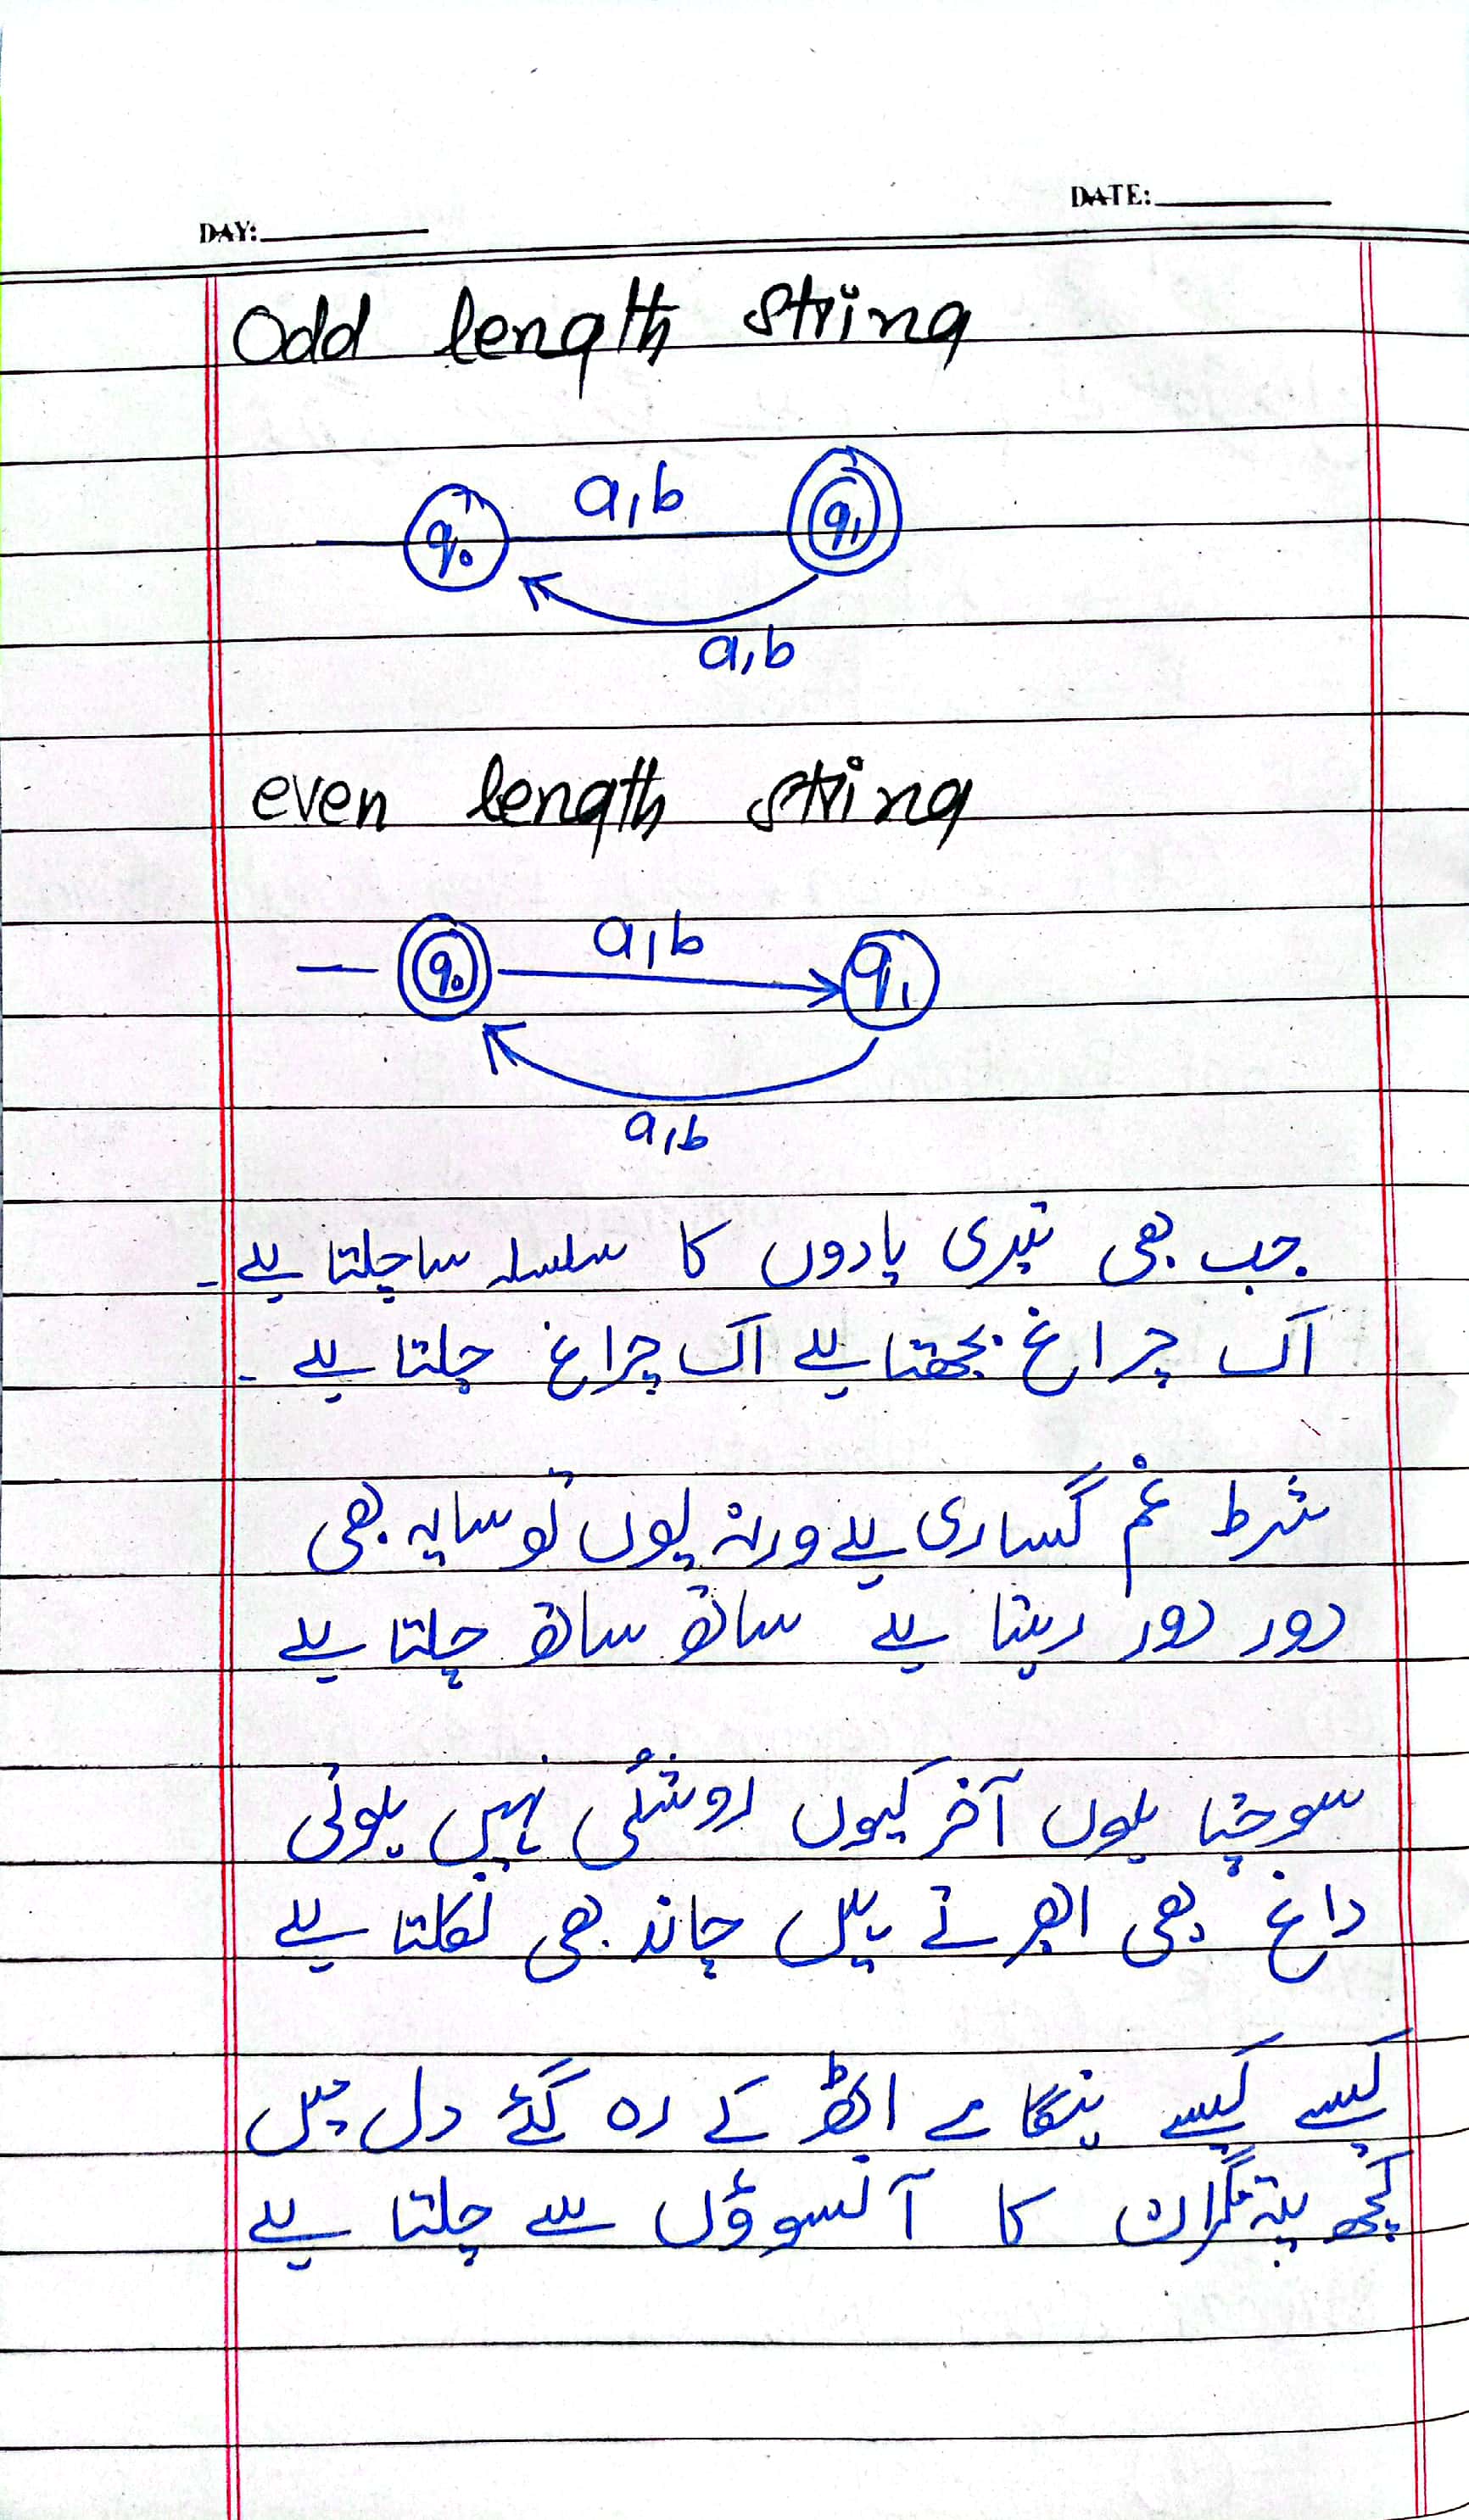 DATE:
DAY:
Odd length string
a,b
q0 q1
a,b
even length string
a,b
q0 q1
a,b
جب بھی تیری یادوں کا سلسلہ سا چلتا ہے ۔
اک چراغ بجھتا ہے اک چراغ جلتا ہے ۔
شرط غم گساری ہے ورنہ یوں تو سایہ بھی
دور دور رہتا ہے ساتھ ساتھ چلتا ہے
سوچتا ہوں آخر کیوں روشنی نہیں ہوتی
داغ بھی ابھرتے ہیں چاند بھی نکلتا ہے
کیسے کیسے ہنگامے اٹھ کے رہ گئے دل میں
کچھ پتہ مگر ان کا آنسوؤں سے چلتا ہے